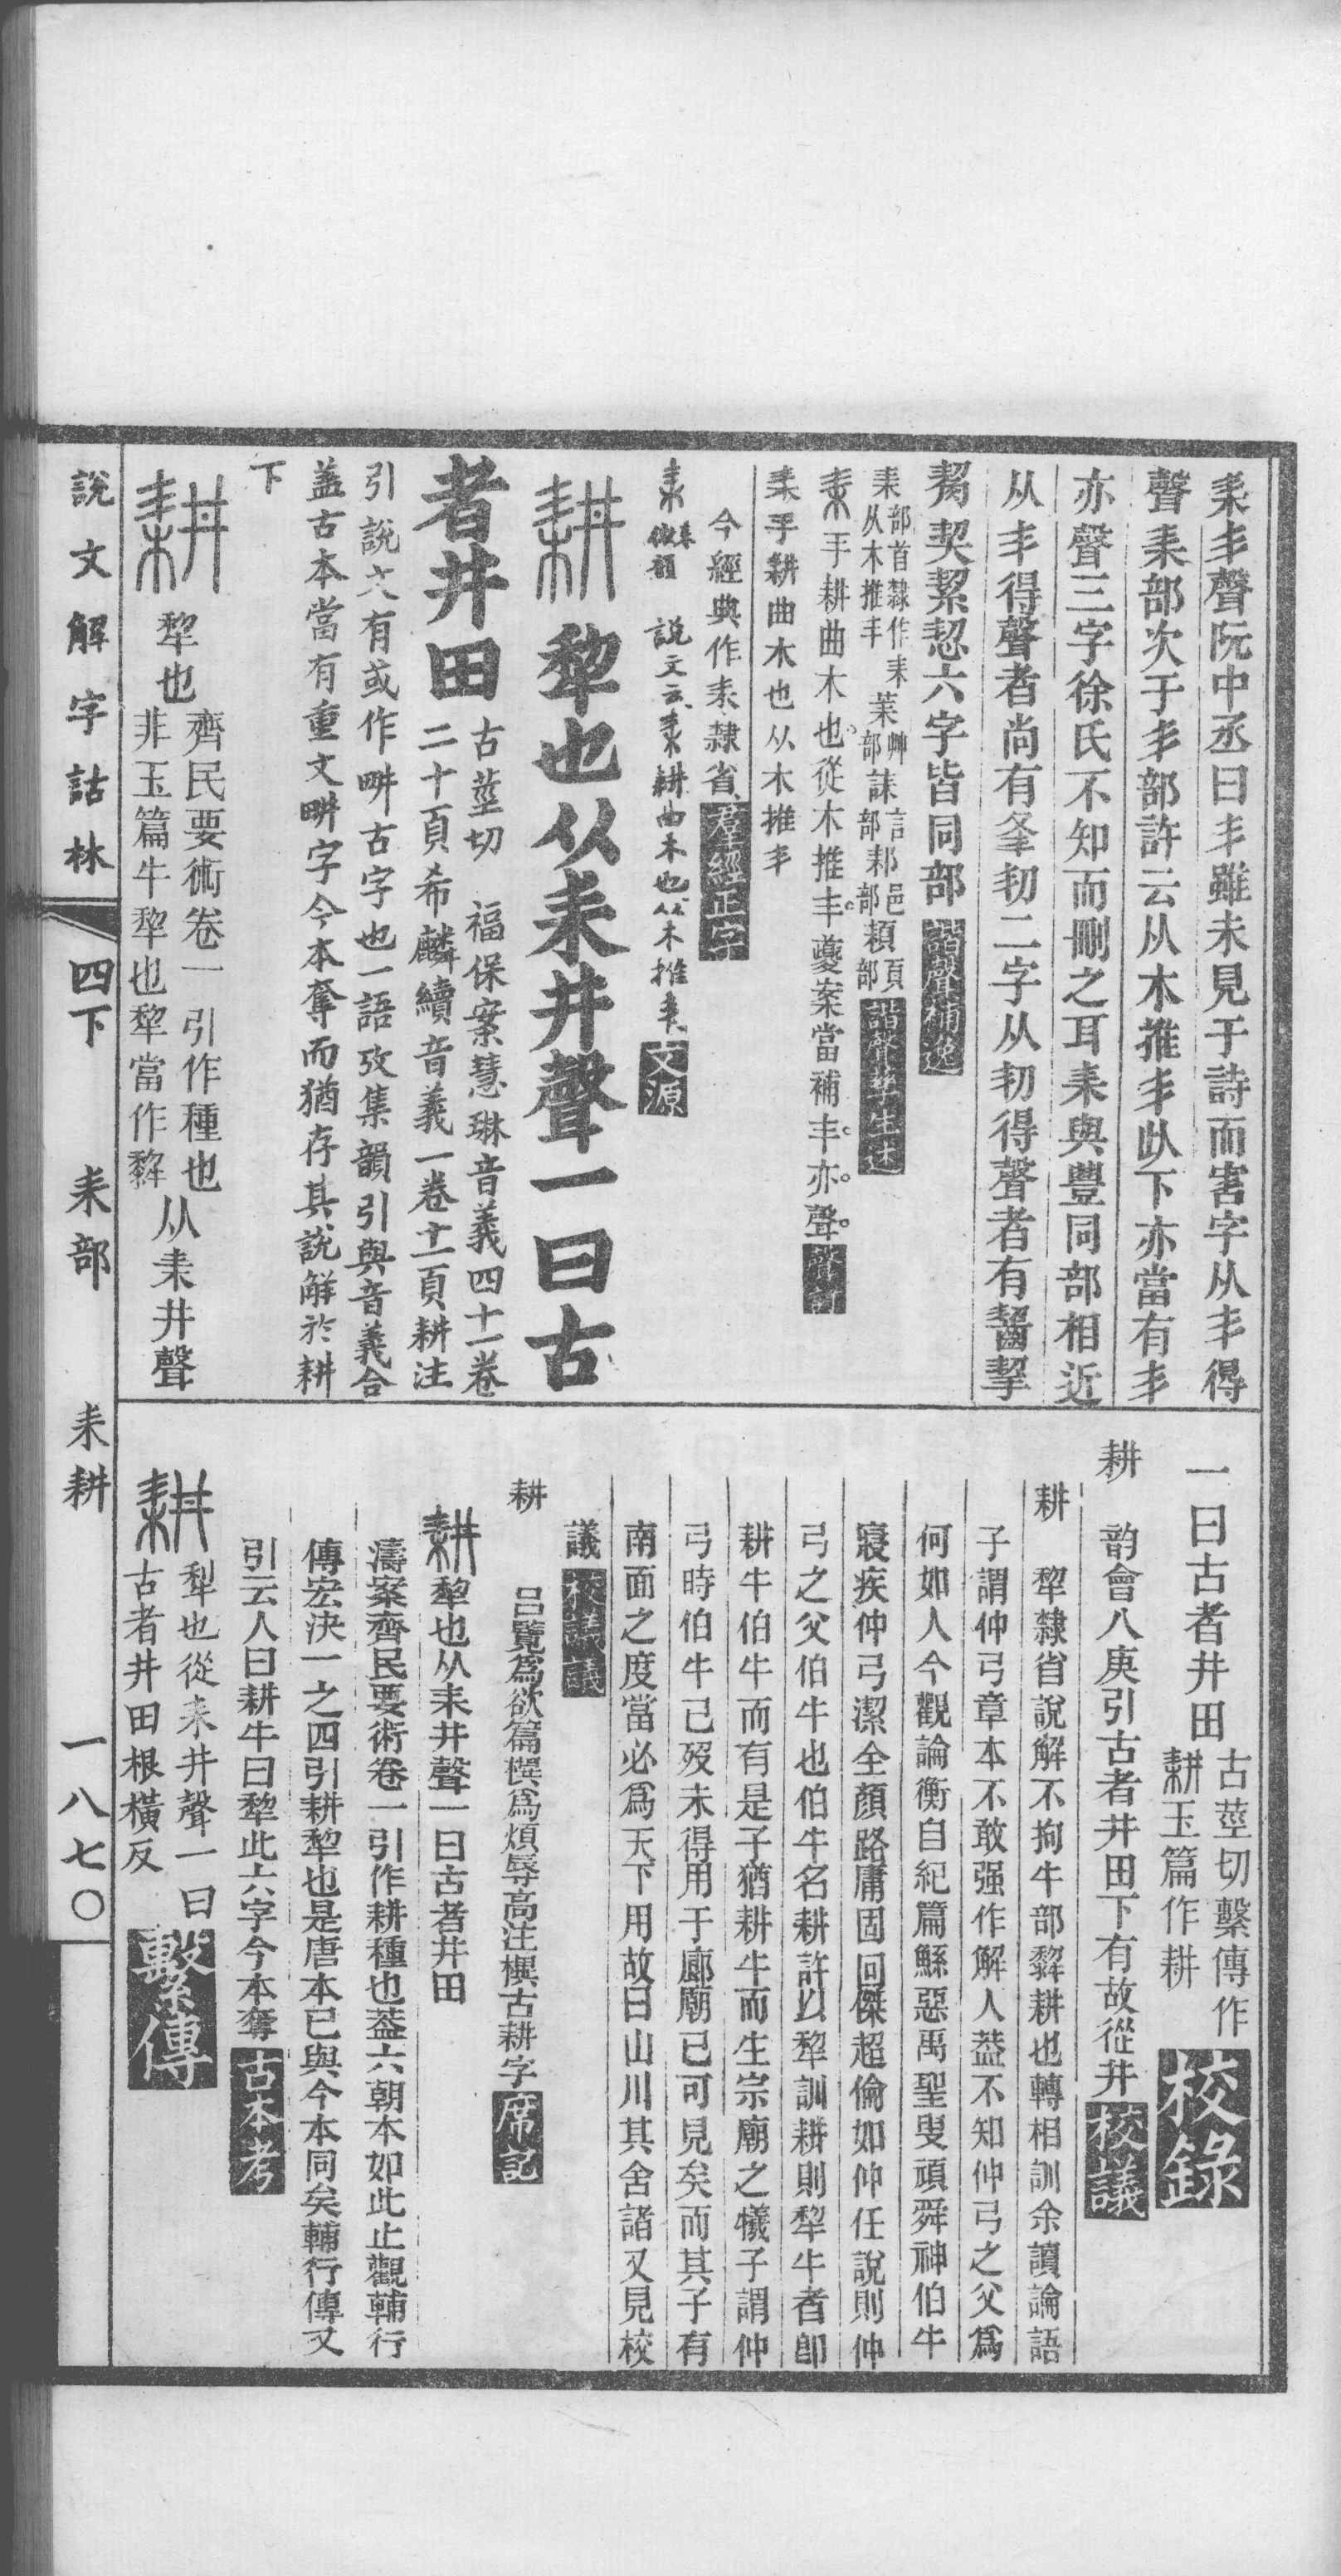 耒丯聲阮中丞曰丯雖未見于詩而害字从丯得
聲耒部次于丯部許云从木推丯㠯下亦當有丯
亦聲三字徐氏不知而刪之耳耒與豐同部相近
从丯得聲者尚有夆㓞二字从㓞得聲者有齧挈
契絜恝六字皆同部 諧聲補逸
耒部首隸作耒从木推丯 茉艸部誄言部耒邑部頪頁部 諧聲孳生述
耒手耕曲木也從木推丯夔案當補丯亦聲 聲訂
耒手耕曲木也从木推丯
今經典作耒隸省 羣經正字
說文云耒耕曲木也从木推丯 文源
耕 犂也从耒井聲一曰古
者井田 古莖切 福保案慧琳音義四十一卷
二十頁希麟續音義一卷十一頁耕注
引說文有或作畊古字也一語攷集韻引與音義合
葢古本當有重文畊字今本奪而猶存其說解於耕
下
耕 犂也 齊民要術卷一引作種也
非玉篇牛犂也犂當作𤛿 从耒井聲
說文解字詁林 四下 耒部 耒耕 一八七〇
一曰古者井田 古莖切繫傳作
耕玉篇作耕 校錄
耕 韵會八庚引古者井田下有故從井 校議
耕 犂隸省說解不拘牛部𤛿耕也轉相訓余讀論語
子謂仲弓章本不敢强作解人葢不知仲弓之父爲
何如人今觀論衡自紀篇鯀惡禹聖叟頑舜神伯牛
寢疾仲弓潔全顏路庸固回傑超倫如仲任說則仲
弓之父伯牛也伯牛名耕許以犂訓耕則犂牛者卽
耕牛伯牛而有是子猶耕牛而生宗廟之犧子謂仲
弓時伯牛已歿未得用于廊廟已可見矣而其子有
南面之度當必爲天下用故曰山川其舍諸又見校
議 校議議
耕 呂覽爲欲篇橪爲煩辱高注橪古耕字 席記
耕 犂也从耒井聲一曰古者井田
濤案齊民要術卷一引作耕種也葢六朝本如此止觀輔行
傳宏決一之四引耕犂也是唐本已與今本同矣輔行傳又
引云人曰耕牛曰犂此六字今本奪 古本考
耕 犂也從耒井聲一曰
古者井田根橫反 繫傳